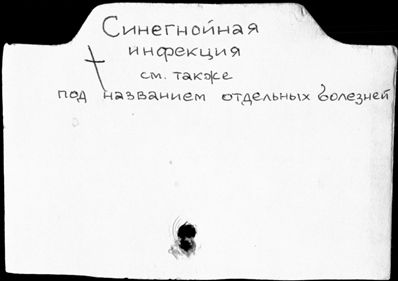 Синегнойная
инфекция
см. также
под названием отдельных болезней